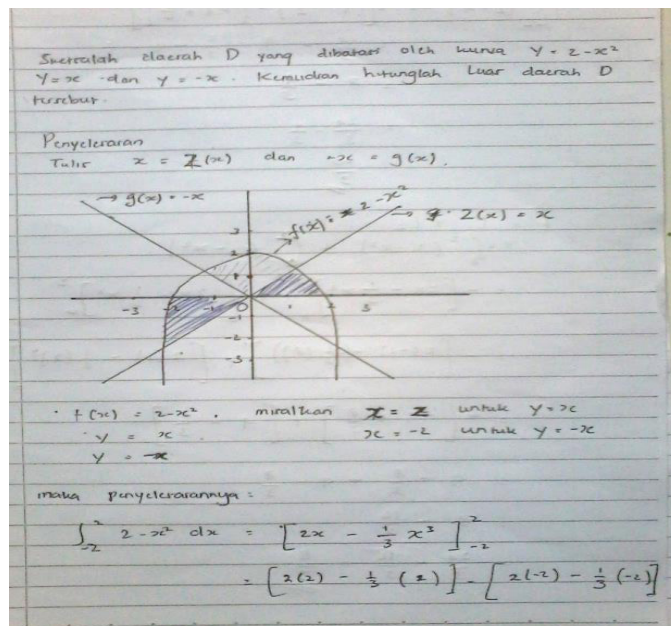 Sketsalah daerah D yang dibatasi oleh kurva y = 2 - x²
y = x dan y = -x. Kemudian hitunglah luas daerah D
tersebut.
Penyelesaian
Tulis x = Z(x) dan -x = g(x).
→ g(x) = -x
→ f(x) = 2 - x²
→ Z(x) = x
3
2
1
-3 -2 -1 0 2 3
-1
-2
-3
f(x) = 2 - x². misalkan x = 2 untuk y = x
y = x x = -2 untuk y = -x
y = -x
maka penyelesaiannya :
∫₋₂² 2 - x² dx = [2x - 1/3 x³]₋₂²
= [2(2) - 1/3 (2)] - [2(-2) - 1/3 (-2)]